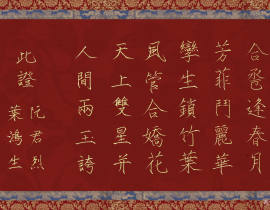 合巹逢春月
芳菲鬥麗華
孿生鎖竹葉
風管合嬌花
天上雙星并
人間兩王誇
此證
阮君烈
葉鴻生